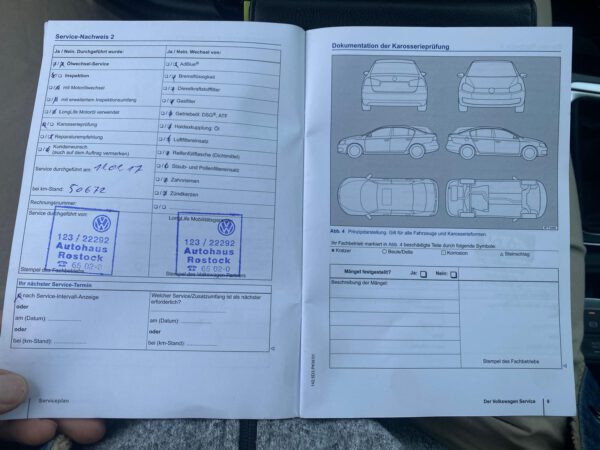 Service-Nachweis 2
Ja / Nein. Durchgeführt wurde:
Ölwechsel-Service
Inspektion
mit Motorölwechsel
mit erweitertem Inspektionsumfang
LongLife Motoröl verwendet
Karosserieprüfung
Reparaturempfehlung
Kundenwunsch
(auch auf dem Auftrag vermerken)
Service durchgeführt am:
bei km-Stand: 50672
Rechnungsnummer:
Service durchgeführt von:
123 / 22292
Autohaus
Rostock
Stempel des Fachbetriebs
Ja / Nein. Wechsel von:
AdBlue®
Bremsflüssigkeit
Dieselkraftstofffilter
Gasfilter
Getriebeöl: DSG®, ATF
Haldexkupplung: Öl
Luftfiltereinsatz
Reifenfüllflasche (Dichtmittel)
Staub- und Pollenfiltereinsatz
Zahnriemen
Zündkerzen
LongLife Mobilitätsgarantie
123 / 22292
Autohaus
Rostock
Stempel des Volkswagen Partners
Ihr nächster Service-Termin
nach Service-Intervall-Anzeige
oder
am (Datum):
oder
bei (km-Stand):
Welcher Service/Zusatzumfang ist als nächster
erforderlich?
am (Datum):
oder
bei (km-Stand):
Serviceplan
Dokumentation der Karosserieprüfung
Abb. 4 Prinzipdarstellung. Gilt für alle Fahrzeuge und Karosserieformen
Ihr Fachbetrieb markiert in Abb. 4 beschädigte Teile durch folgende Symbole:
Kratzer Beule/Delle Korrosion Steinschlag
Mängel festgestellt? Ja: Nein:
Beschreibung der Mängel:
Stempel des Fachbetriebs
Der Volkswagen Service 9